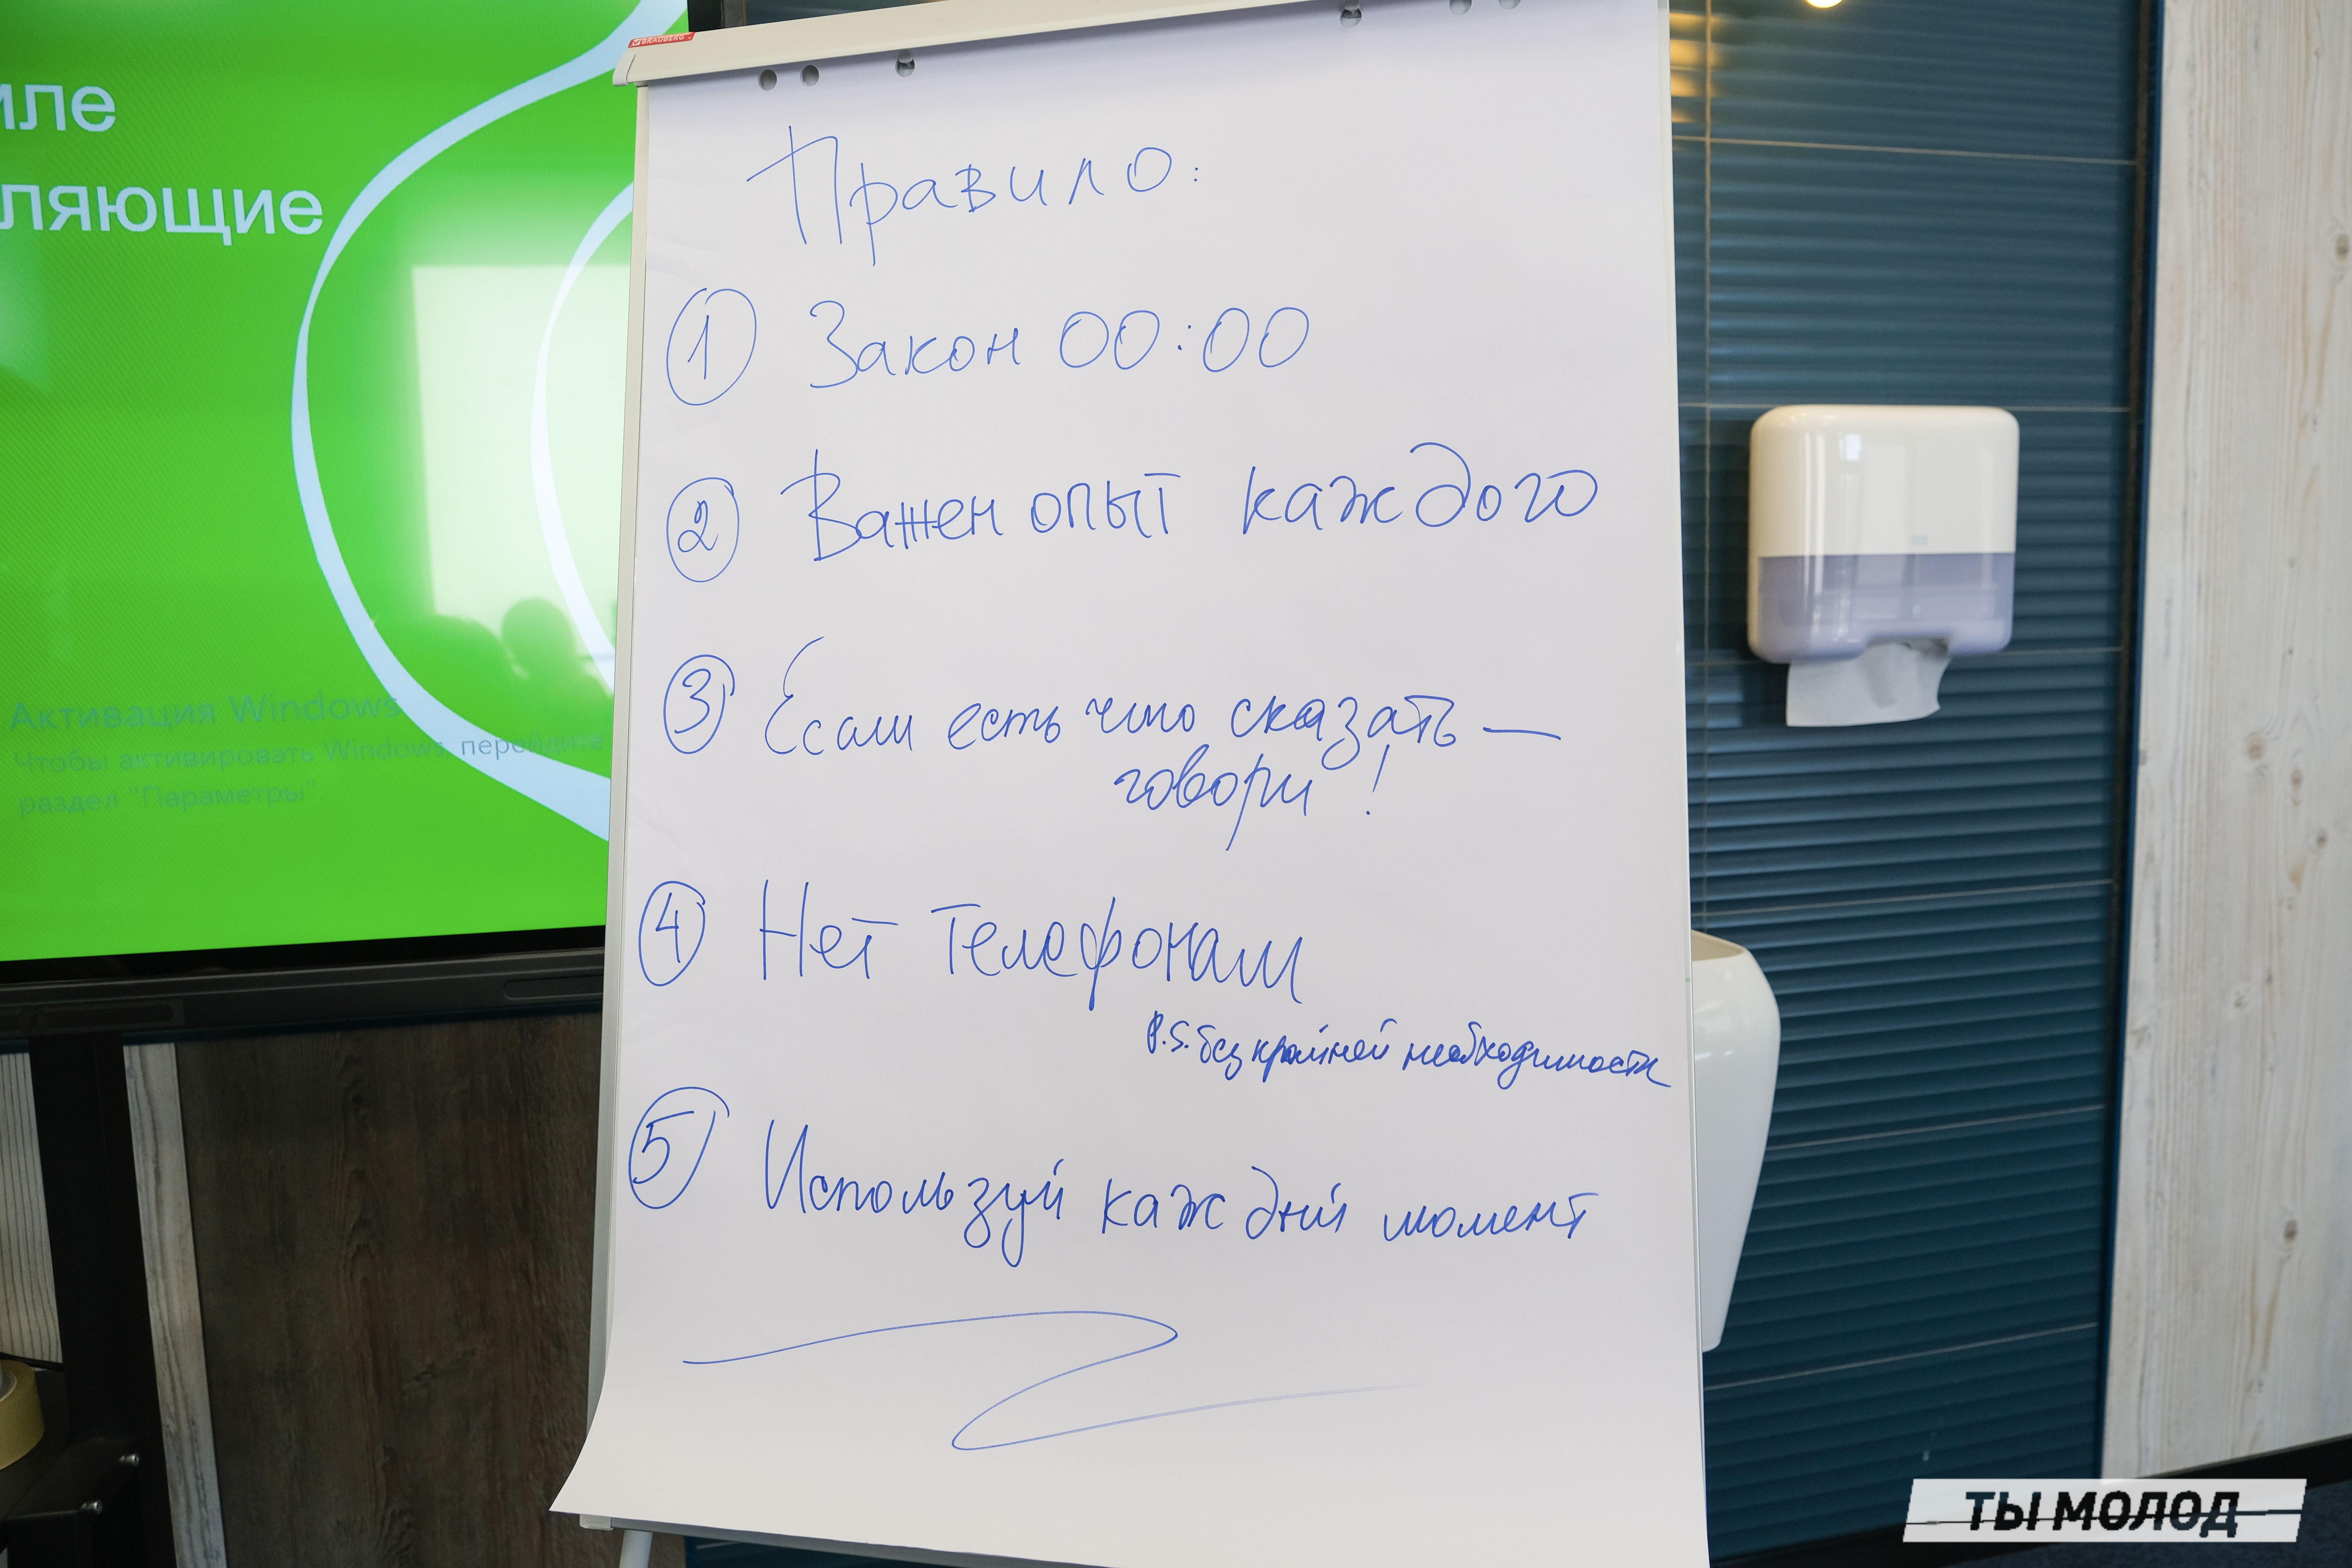 иле
ляющие
Активация Windows
Чтобы активировать Windows, перейдите
раздел "Параметры".
BRAUBERG
Правило:
1 Закон 00:00
2 Важен опыт каждого
3 Если есть что сказать —
говори!
4 Нет телефонам
P.S. без крайней необходимости
5 Используй каждый момент
ТЫ МОЛОД